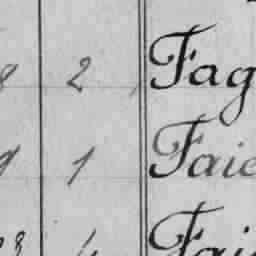 8 2 Fag
9 1 Faie
23 4 Fai